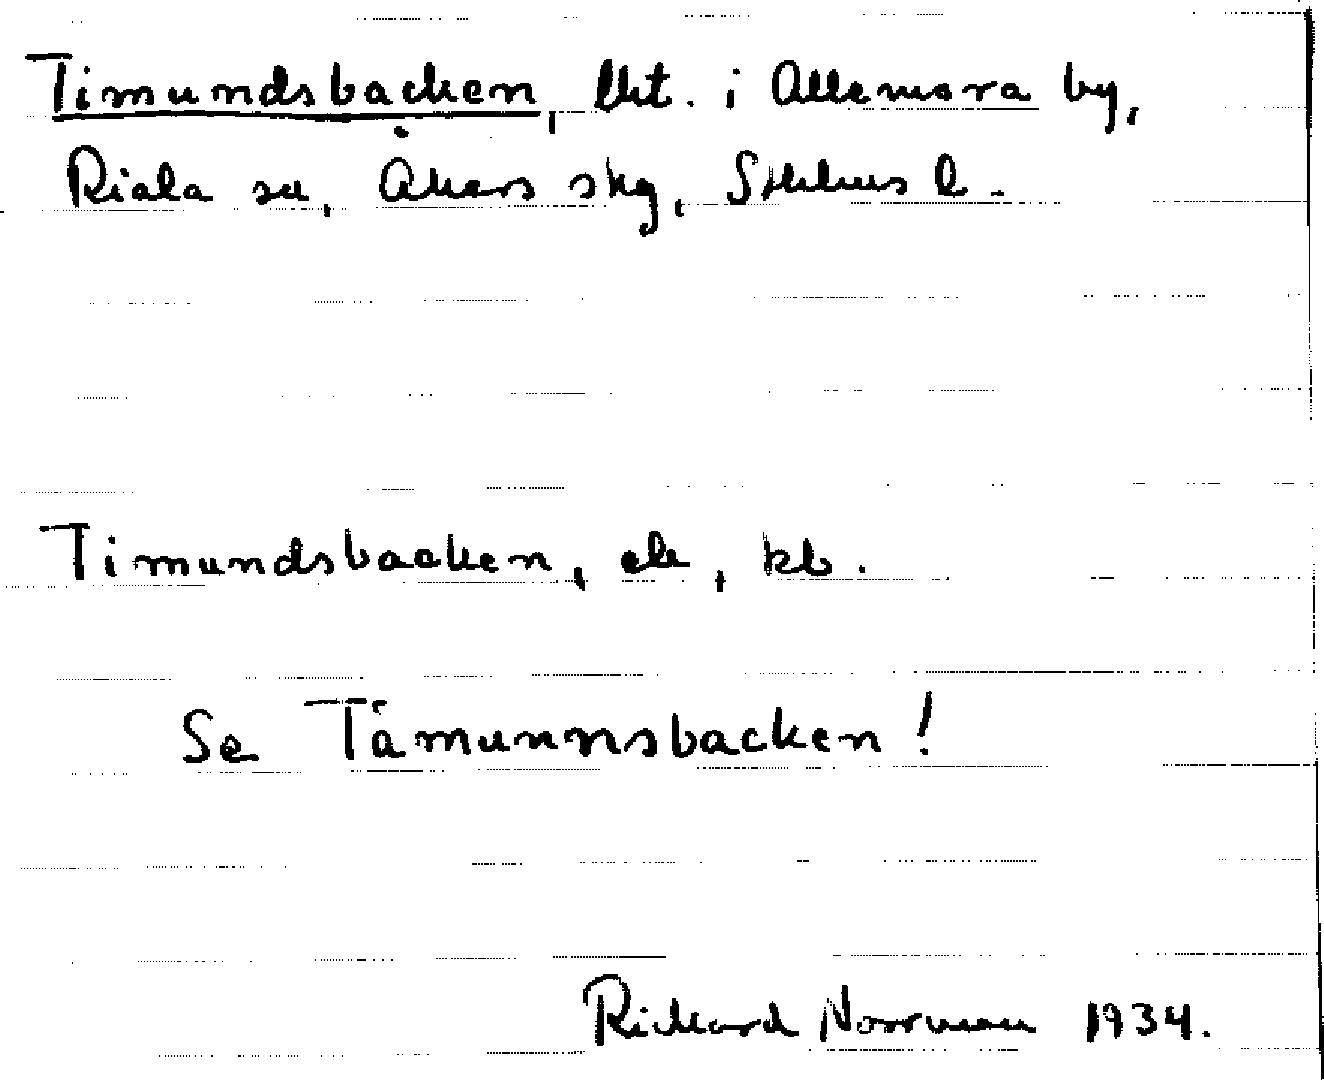 Timundsbacken, lht. i Allemora by,
Riala sn, Åkers skg, Sthlms l.
Timundsbacken, ek, kb.
Se Tåmunnsbacken!
Rickard Norrman 1934.